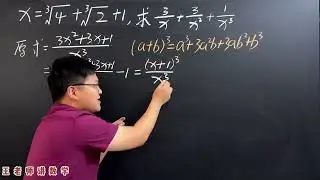 x = ∛4 + ∛2 + 1, 求 3/x + 3/x² + 1/x³
原式 = (3x²+3x+1)/x³ (a+b)³ = a³+3a²b+3ab²+b³
= 3x+1 - 1 = (x+1)³/x³
王老师讲数学